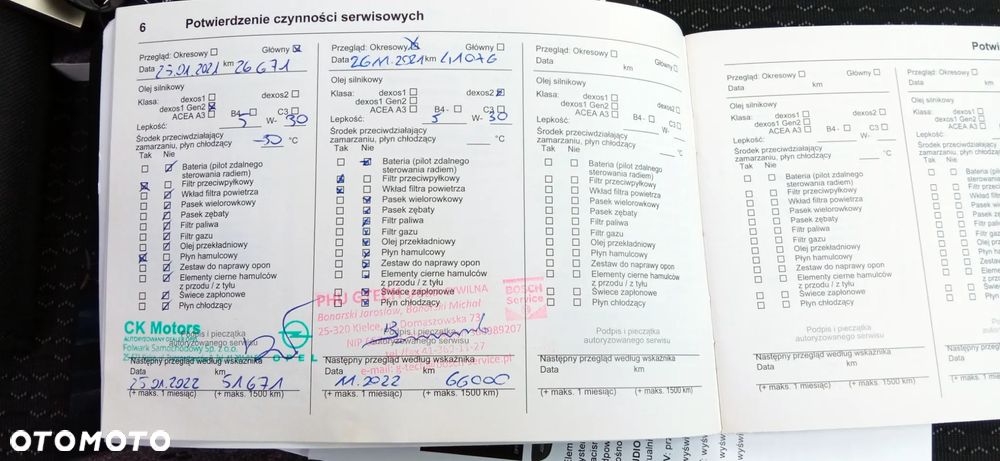 6 Potwierdzenie czynności serwisowych
Przegląd: Okresowy Główny
Data 25.01.2021 km 26671
Olej silnikowy
Klasa: dexos1 dexos2
dexos1 Gen2
ACEA A3 B4 - C3
Lepkość: 5 W- 30
Środek przeciwdziałający
zamarzaniu, płyn chłodzący -50 °C
Tak Nie
Bateria (pilot zdalnego
sterowania radiem)
Filtr przeciwpyłkowy
Wkład filtra powietrza
Pasek wielorowkowy
Pasek zębaty
Filtr paliwa
Filtr gazu
Olej przekładniowy
Płyn hamulcowy
Zestaw do naprawy opon
Elementy cierne hamulców
z przodu / z tyłu
Świece zapłonowe
Płyn chłodzący
CK Motors
AUTORYZOWANY DEALER OPEL
Folwark Samochodowy Sp. z o.o.
OPEL
Podpis i pieczątka
autoryzowanego serwisu
Następny przegląd według wskaźnika
Data km
25.01.2022 51671
(+ maks. 1 miesiąc) (+ maks. 1500 km)
Przegląd: Okresowy Główny
Data 26.11.2021 km 41076
Olej silnikowy
Klasa: dexos1 dexos2
dexos1 Gen2
ACEA A3 B4 - C3
Lepkość: 5 W- 30
Środek przeciwdziałający
zamarzaniu, płyn chłodzący °C
Tak Nie
Bateria (pilot zdalnego
sterowania radiem)
Filtr przeciwpyłkowy
Wkład filtra powietrza
Pasek wielorowkowy
Pasek zębaty
Filtr paliwa
Filtr gazu
Olej przekładniowy
Płyn hamulcowy
Zestaw do naprawy opon
Elementy cierne hamulców
z przodu / z tyłu
Świece zapłonowe
Płyn chłodzący
PHU CYWILNA
Banarski Jarosław, Michał
25-320 Kielce, Domaszowska 73
NIP
BOSCH
Service
Podpis i pieczątka
autoryzowanego serwisu
Następny przegląd według wskaźnika
Data km
11.2022 66000
(+ maks. 1 miesiąc) (+ maks. 1500 km)
Przegląd: Okresowy Główny
Data km
Olej silnikowy
Klasa: dexos1 dexos2
dexos1 Gen2
ACEA A3 B4 - C3
Lepkość: W-
Środek przeciwdziałający
zamarzaniu, płyn chłodzący °C
Tak Nie
Bateria (pilot zdalnego
sterowania radiem)
Filtr przeciwpyłkowy
Wkład filtra powietrza
Pasek wielorowkowy
Pasek zębaty
Filtr paliwa
Filtr gazu
Olej przekładniowy
Płyn hamulcowy
Zestaw do naprawy opon
Elementy cierne hamulców
z przodu / z tyłu
Świece zapłonowe
Płyn chłodzący
Podpis i pieczątka
autoryzowanego serwisu
Następny przegląd według wskaźnika
Data km
(+ maks. 1 miesiąc) (+ maks. 1500 km)
Przegląd: Okresowy Główny
Data km
Olej silnikowy
Klasa: dexos1 dexos2
dexos1 Gen2
ACEA A3 B4 - C3
Lepkość: W-
Środek przeciwdziałający
zamarzaniu, płyn chłodzący °C
Tak Nie
Bateria (pilot zdalnego
sterowania radiem)
Filtr przeciwpyłkowy
Wkład filtra powietrza
Pasek wielorowkowy
Pasek zębaty
Filtr paliwa
Filtr gazu
Olej przekładniowy
Płyn hamulcowy
Zestaw do naprawy opon
Elementy cierne hamulców
z przodu / z tyłu
Świece zapłonowe
Płyn chłodzący
Podpis i pieczątka
autoryzowanego serwisu
Następny przegląd według wskaźnika
Data km
(+ maks. 1 miesiąc) (+ maks. 1500 km)
OTOMOTO